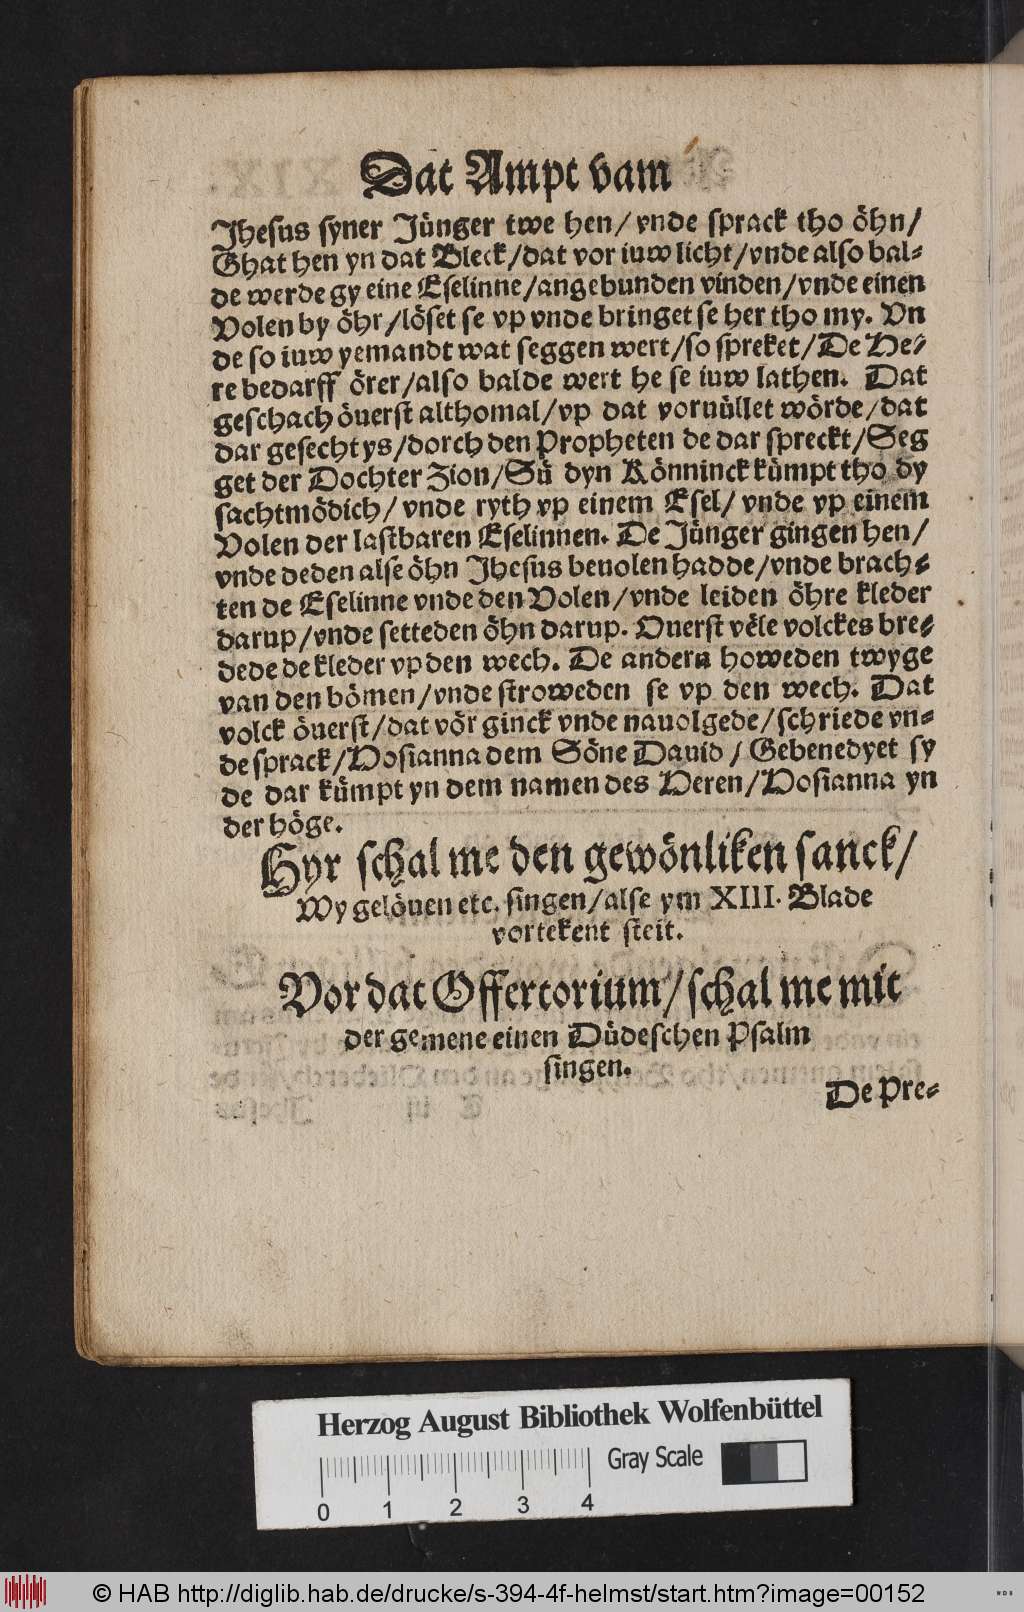 Dat Ampt vam
Jhesus syner Jünger twe hen/ vnde sprack tho öhn/
Ghat hen yn dat Bleck/dat vor iuw licht/vnde also bal-
de werde gy eine Eselinne/angebunden vinden/vnde einen
Volen by öhr/löset se vp vnde bringet se her tho my. Vn
de so iuw yemandt wat seggen wert/so spreket/De He-
re bedarff örer/also balde wert he se iuw lathen. Dat
geschach öuerst althomal/vp dat voruüllet wörde/dat
dar gesecht ys/dorch den Propheten de dar spreckt/Seg
get der Dochter Zion/Sü dyn Könninck kümpt tho dy
sachtmödich/ vnde ryth vp einem Esel/ vnde vp einem
Volen der lastbaren Eselinnen. De Jünger gingen hen/
vnde deden alse öhn Jhesus beuolen hadde/vnde brach-
ten de Eselinne vnde den Volen/vnde leiden öhre kleder
darup/vnde setteden öhn darup. Ouerst vële volckes bre-
dede de kleder vp den wech. De andern howeden twyge
van den bömen/vnde stroweden se vp den wech. Dat
volck öuerst/dat vör ginck vnde nauolgede/schriede vn-
de sprack/Hosianna dem Söne Dauid / Gebenedyet sy
de dar kümpt yn dem namen des Heren/Hosianna yn
der höge.
Hyr schal me den gewönliken sanck/
Wy gelöuen etc. singen/alse ym XIII. Blade
vortekent steit.
Vor dat Offertorium/schal me mit
der gemene einen Düdeschen Psalm
singen.
De Pre-
Herzog August Bibliothek Wolfenbüttel
Gray Scale
0 1 2 3 4
© HAB http://diglib.hab.de/drucke/s-394-4f-helmst/start.htm?image=00152